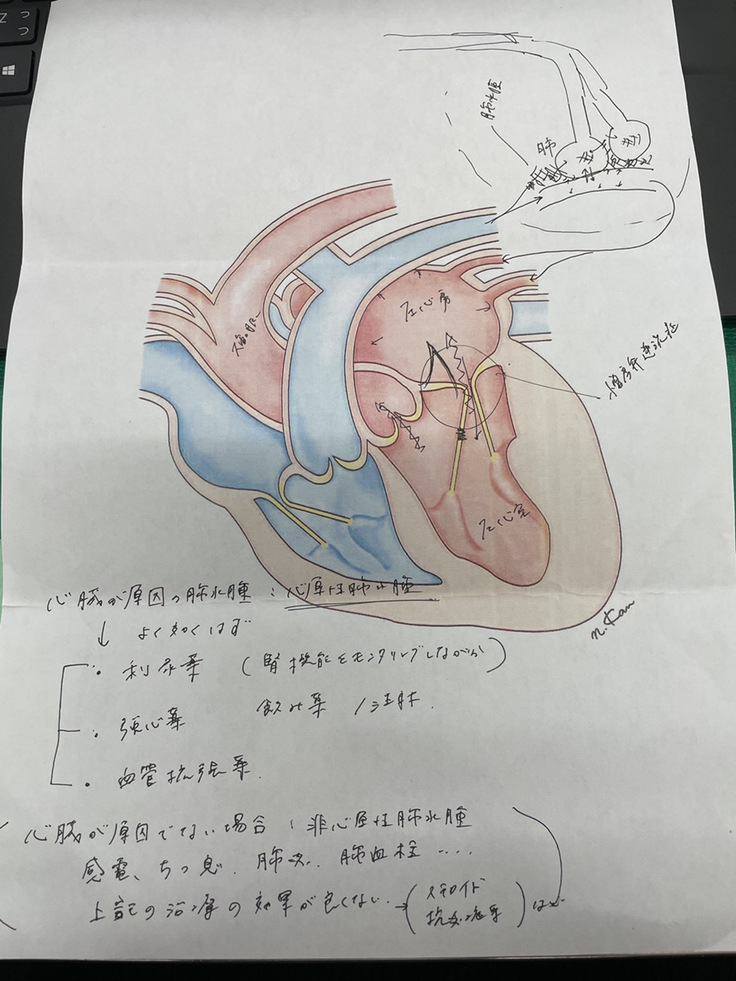 肺水腫
肺
左心房
大動脈
僧帽弁逆流症
左心室
N. Kan
心臓が原因の肺水腫：心原性肺水腫
↓ よく効くはず
・利尿薬 (腎機能をモニタリングしながら)
・強心薬 飲み薬/注射.
・血管拡張薬.
心臓が原因でない場合：非心原性肺水腫
感電、ちっ息、肺炎、肺血栓....
上記の治療の効果が良くない→(ステロイド
抗炎症薬)